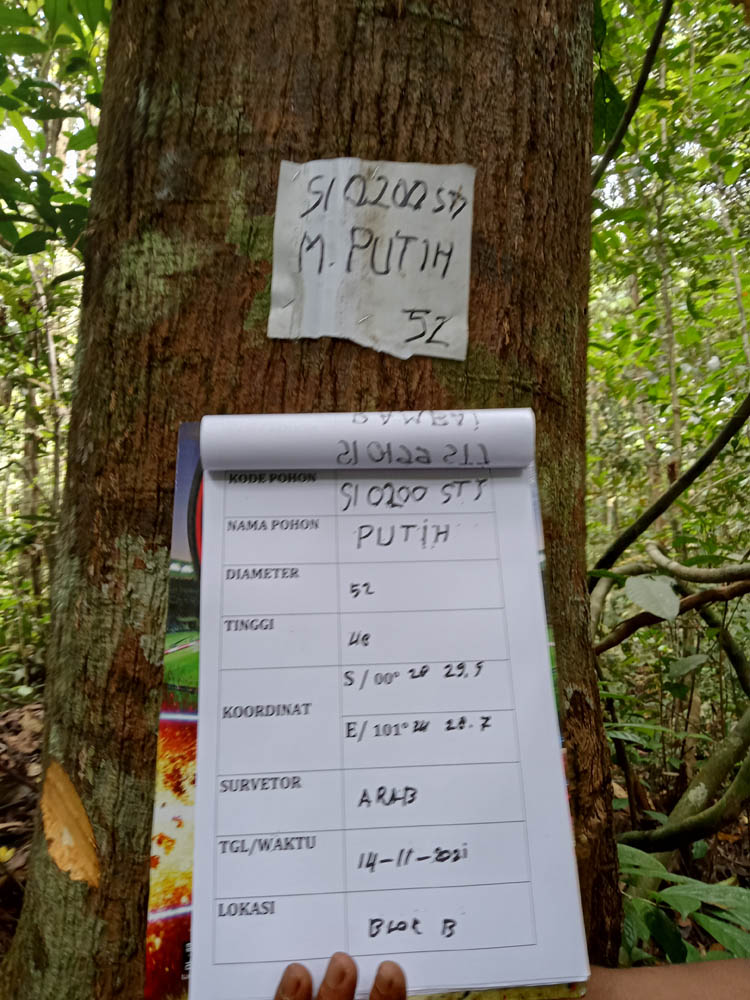 SI 0200 STJ
M. PUTIH
52
KODE POHON SI 0200 STJ
NAMA POHON PUTIH
DIAMETER 52
TINGGI
KOORDINAT
S / 00° 28 29,5
E/ 101° 28.7
SURVETOR ARAB
TGL/WAKTU 14-11-2021
LOKASI BLOK B